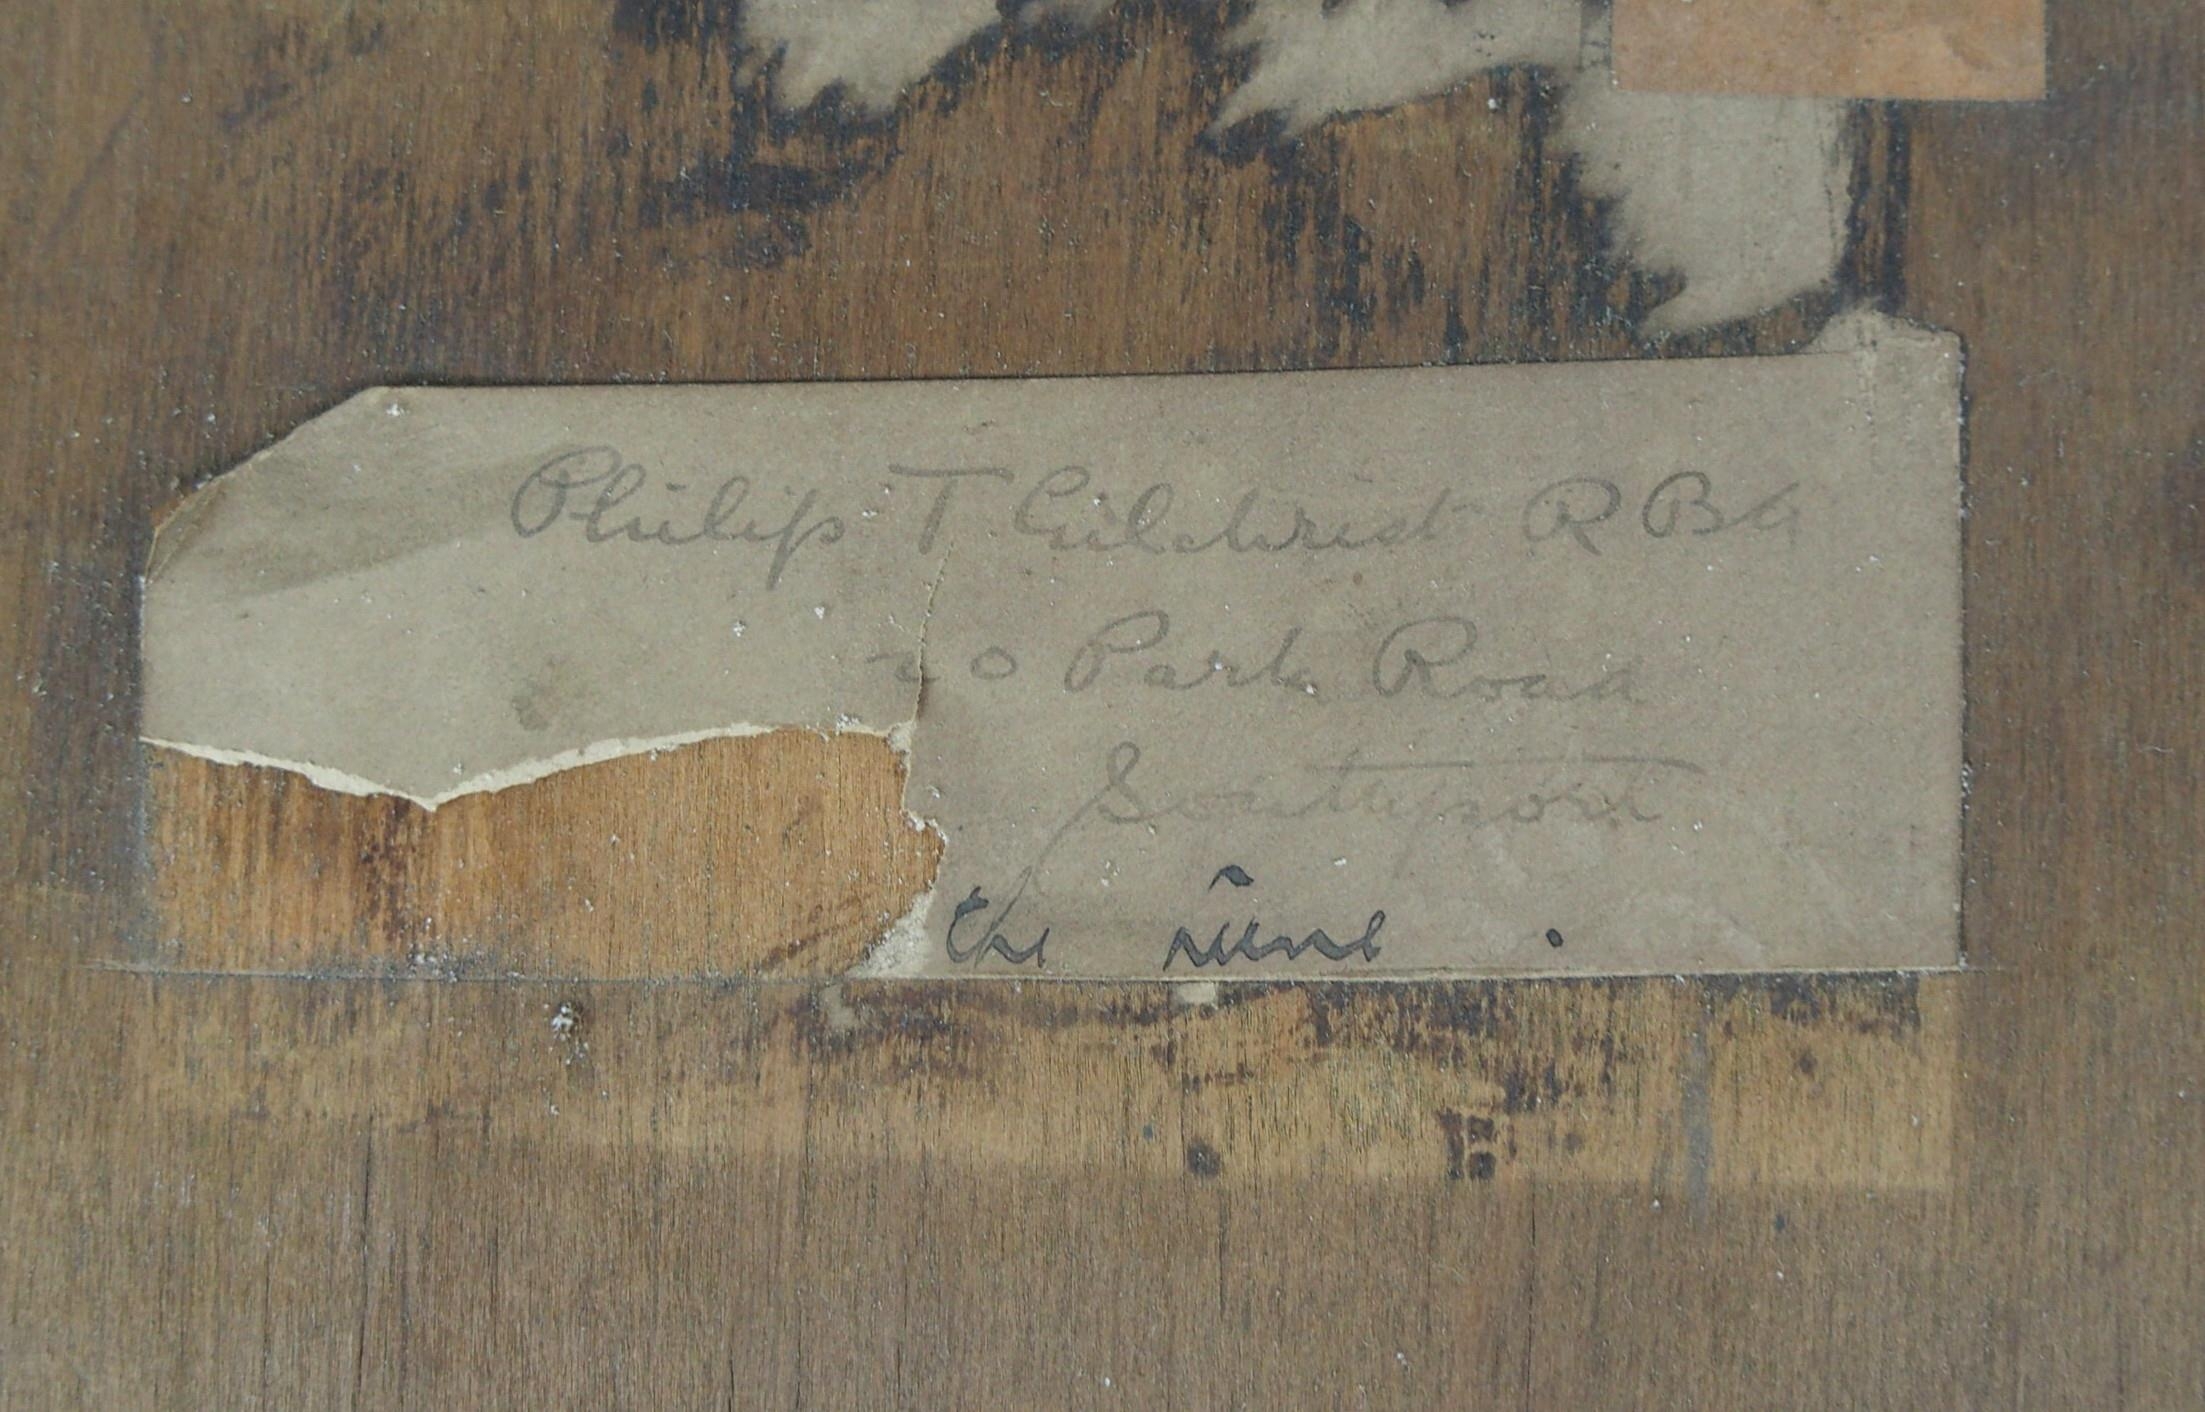 Philip T Gilchrist RBA
20 Park Road
Southport
the